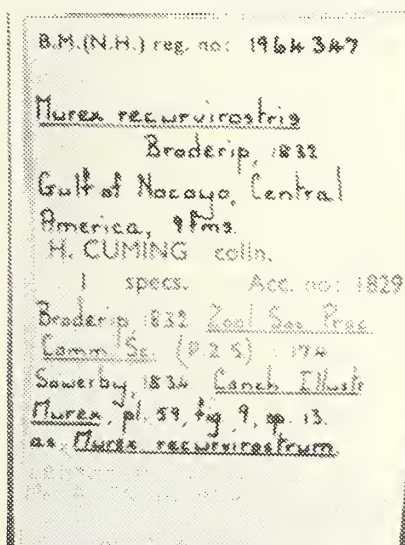 B.M.(N.H.) reg. no: 1964 347
Murex recurvirostris
Broderip, 1832
Gulf of Nocoyo, Central
America, 9 fms.
H. CUMING colln.
1 specs. Acc. no: 1829
Broderip, 1832 Zool Soc Proc
Comm. Sc. (P.2 S) : 174
Sowerby, 1834 Conch Illustr
Murex, pl. 59, fig 9, sp. 13.
as Murex recurvirostrum